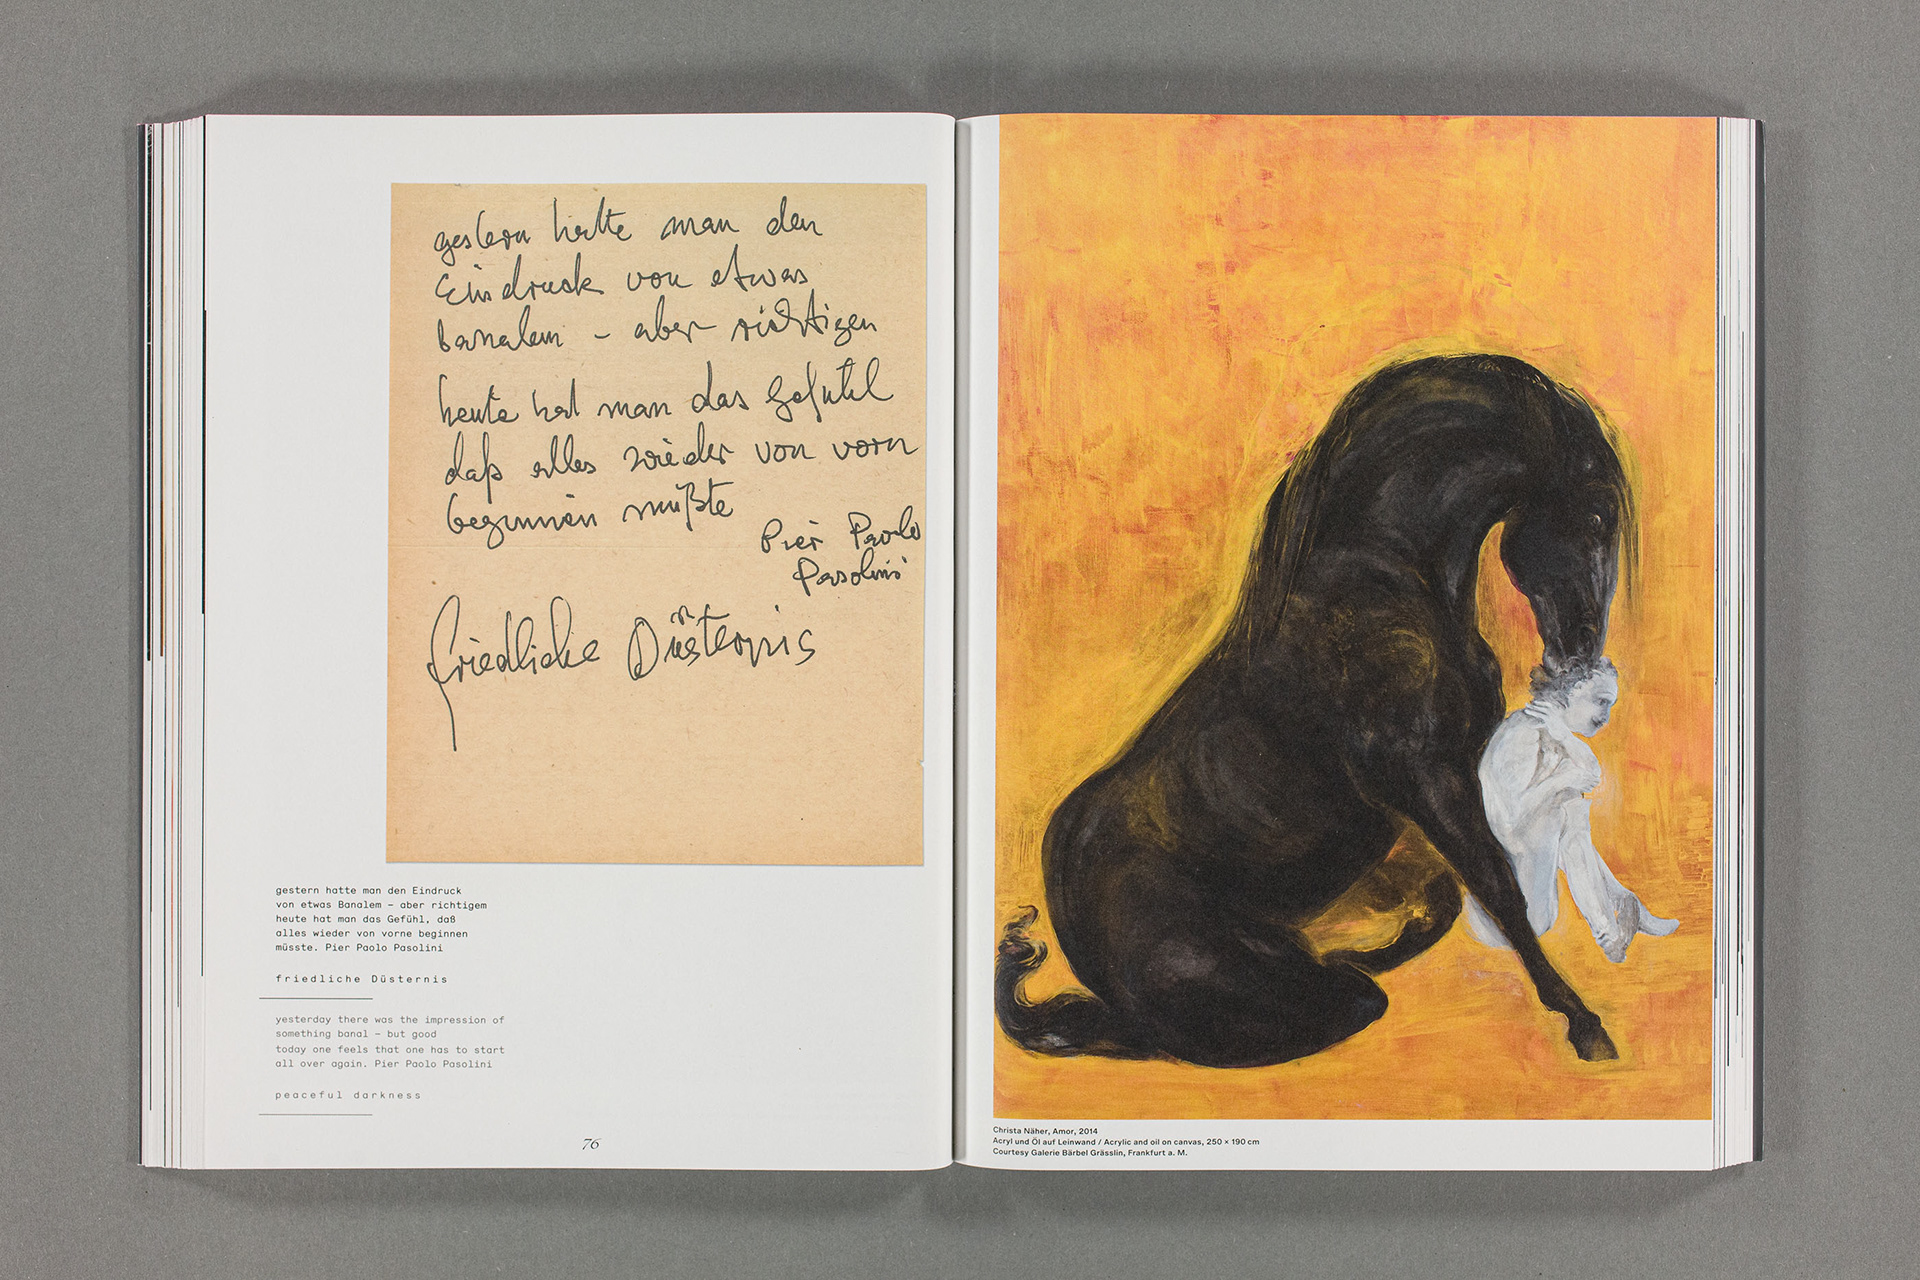 gestern hatte man den
Eindruck von etwas
banalem – aber richtigen
heute hat man das Gefühl
daß alles wieder von vorn
beginnen müßte
Pier Paolo
Pasolini
friedliche Düsternis
gestern hatte man den Eindruck
von etwas Banalem – aber richtigem
heute hat man das Gefühl, daß
alles wieder von vorne beginnen
müsste. Pier Paolo Pasolini
friedliche Düsternis
yesterday there was the impression of
something banal – but good
today one feels that one has to start
all over again. Pier Paolo Pasolini
peaceful darkness
76
Christa Näher, Amor, 2014
Acryl und Öl auf Leinwand / Acrylic and oil on canvas, 250 × 190 cm
Courtesy Galerie Bärbel Grässlin, Frankfurt a. M.